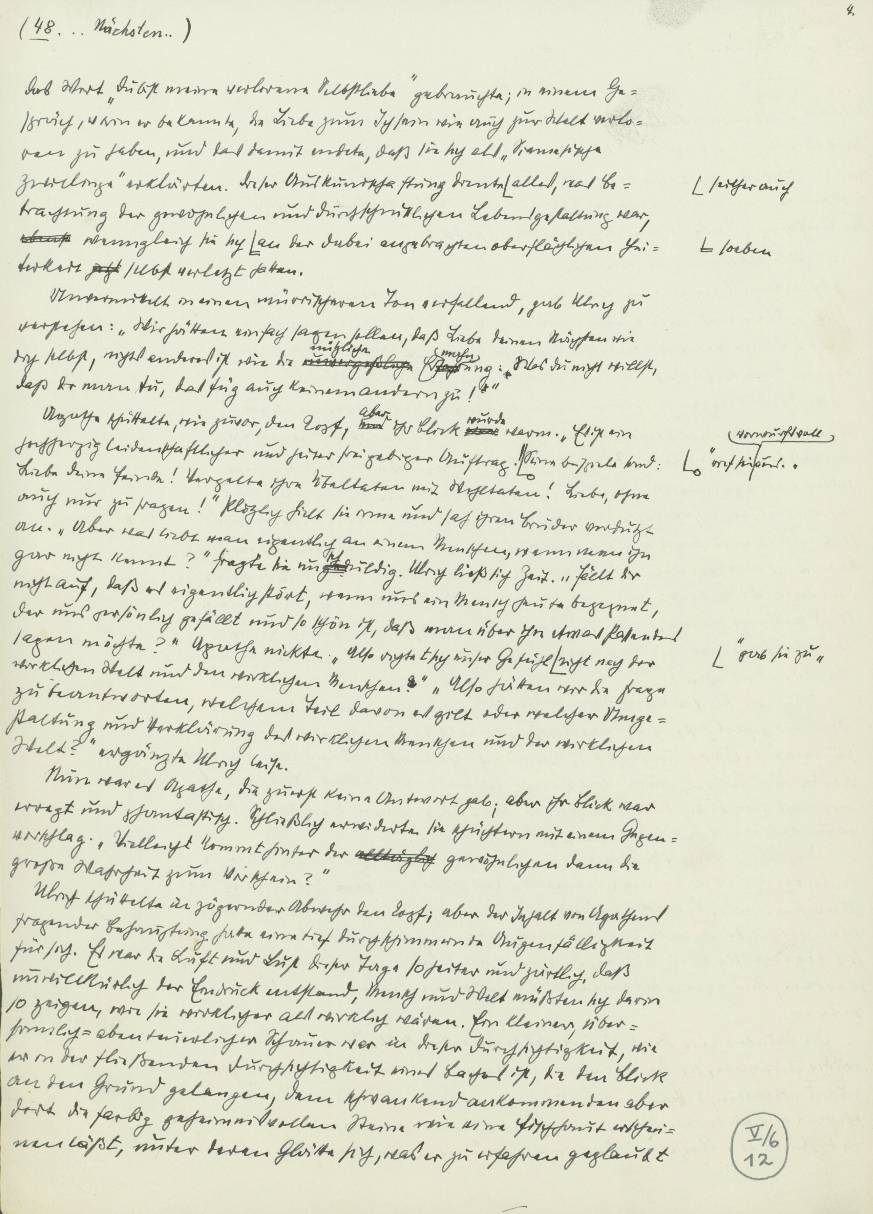 4.
(48... Nächsten..)
das Wort „Du bist meine verlorene Selbstliebe" gebrauchte; in einem Ge=
spräch, worin er bekannte, die Liebe zum Ichsein wie auch zur Welt verlo=
ren zu haben, und das damit endete, daß sie sich als „Siamesische
Zwillinge" erklärten. Dieser Auskundschaftung diente ⌊ alles, was Be=
⌊ seither auch
trachtung der gewöhnlichen und durchschnittlichen Lebensgestaltung war,
wenngleich sie sich ⌊ an der dabei angebrachten oberflächlichen Hei=
⌊ soeben
terkeit jetzt selbst verletzt hatten.
Unvermittelt in einen mürrischeren Ton verfallend, gab Ulrich zu
verstehen: „Wir hätten einfach sagen sollen, daß Liebe deinen Nächsten wie
nützliche
dich selbst, nichts anderes ist wie die Mahnung: Was du nicht willst,
daß dir man tu, das füg auch keinem andern zu!"
Agathe schüttelte, wie zuvor, den Kopf, aber ihr Blick wurde warm. „Es ist ein
vorwurfsvoll
hochherzig leidenschaftlicher und heiter freigebiger Auftrag! ⌊ Seine Beispiele sind:
⌊ " rief sie aus. „
Liebe deine Feinde! Vergelte ihre Übeltaten mit Wohltaten! Liebe, ohne
auch nur zu fragen!" Plötzlich hielt sie inne und sah ihren Bruder verdutzt
an. „Aber was liebt man eigentlich an einem Menschen, wenn man ihn
gar nicht kennt?" fragte sie unschuldig. Ulrich ließ sich Zeit. „Fällt dir
nicht auf, daß es eigentlich stört, wenn uns ein Mensch heute begegnet,
der uns persönlich gefällt und so schön ist, daß man über ihn etwas Passendes
sagen möchte?" Agathe nickte. „Also richtet sich unser Gefühl ⌊ nicht nach der
⌊ " gab sie zu „
wirklichen Welt und den wirklichen Menschen." „Also hätten wir die Frage
zu beantworten, welchem Teil davon es gilt oder welcher Umge=
staltung und Verklärung des wirklichen Menschen und der wirklichen
Welt?" ergänzte Ulrich leise.
Nun war es Agathe, die zuerst keine Antwort gab; aber ihr Blick war
erregt und phantastisch. Schließlich erwiderte sie schüchtern mit einem Gegen=
vorschlag. „Vielleicht kommt hinter der alltäglich gewöhnlichen dann die
große Wahrheit zum Vorschein?"
Ulrich schüttelte in zögernder Abwehr den Kopf; aber der Inhalt von Agathens
fragender Behauptung hatte eine tief durchschimmernde Augenfälligkeit
für sich. Es war die Luft und Lust dieser Tage so heiter und zärtlich, daß
unwillkürlich der Eindruck entstand, Mensch und Welt müßten sich darin
so zeigen, wie sie wirklicher als wirklich wären. Ein kleiner, über=
sinnlich=abenteuerlicher Schauer war in dieser Durchsichtigkeit, wie
er in der fließenden Durchsichtigkeit eines Baches ist, die den Blick
an den Grund gelangen, dem schwankend ankommenden aber
dort die farbig geheimnisvollen Steine wie eine Fischhaut erschei=
nen läßt, unter deren Glätte sich, was er zu erfahren geglaubt
V/6
12